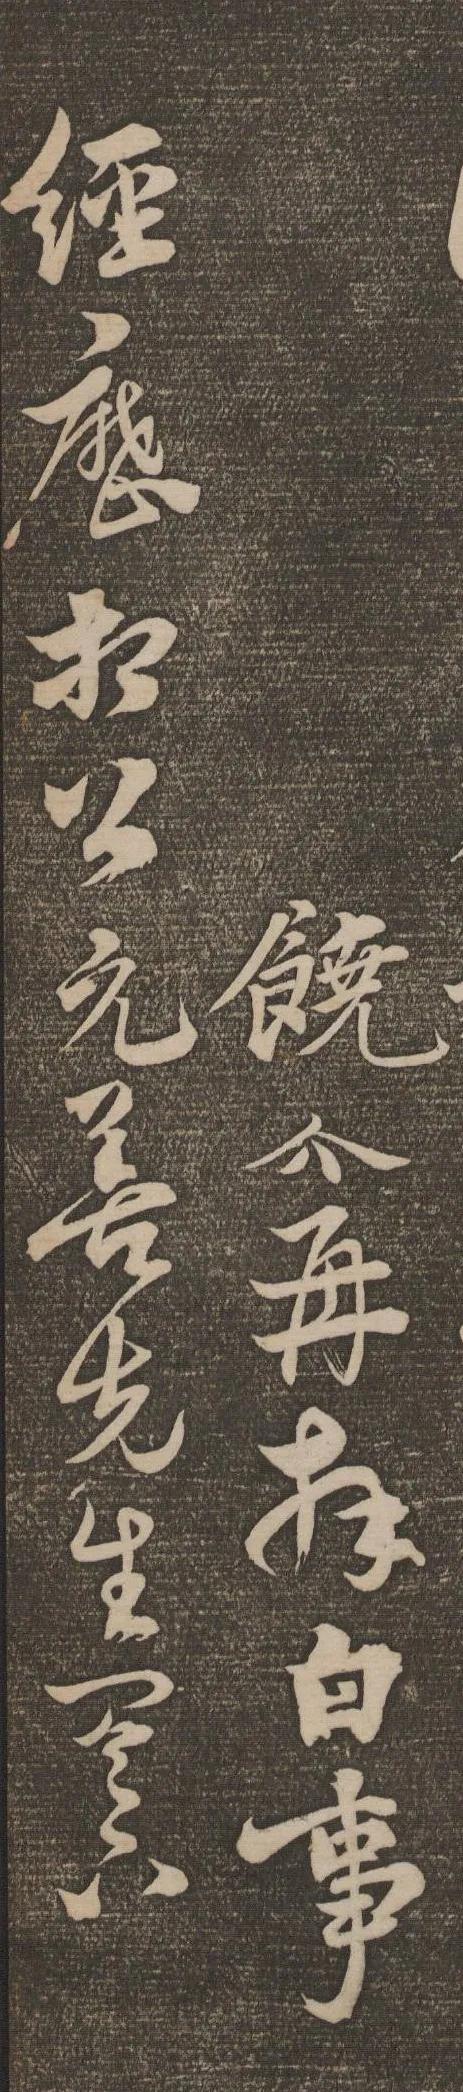 饒介再拜白事
經歷相公元善先生閣下